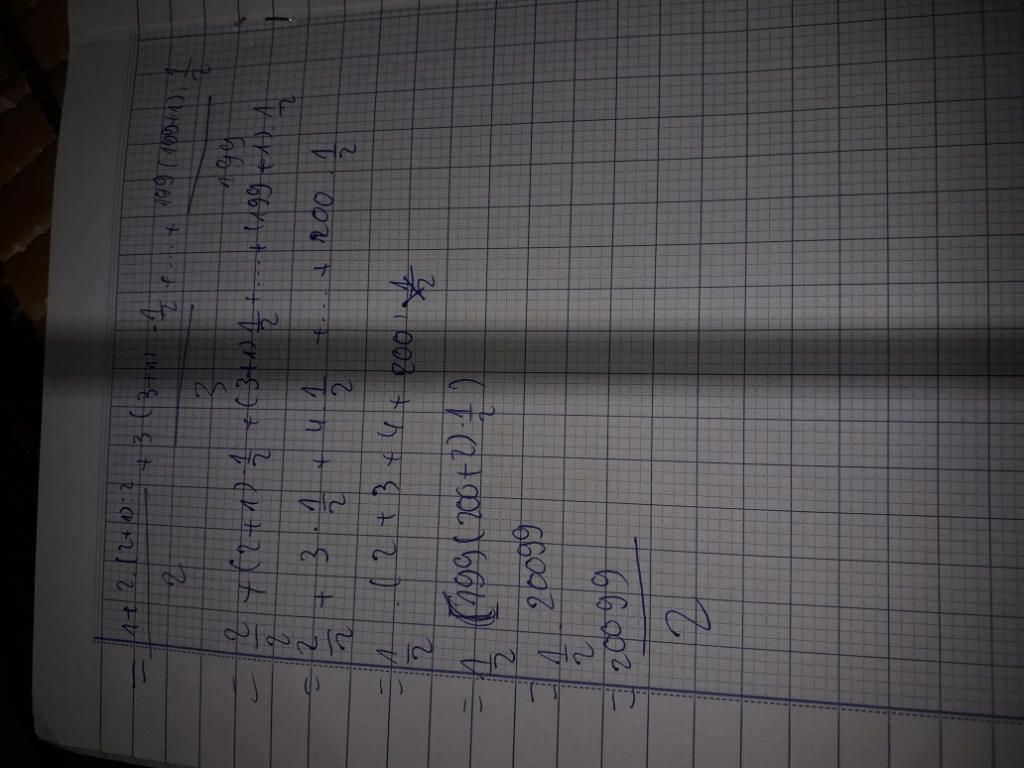 = 1 + 2(2+1):2/2 + 3(3+1)·1/2/3 + .... + 199(199+1)·1/2/199
= 2/2 + (2+1)1/2 + (3+1)1/2 + .... + (199+1)·1/2
= 2/2 + 3·1/2 + 4·1/2 + .... + 200·1/2
= 1/2·(2+3+4+200)
= 1/2 (199(200+2)·1/2)
= 1/2·20099
= 20099/2